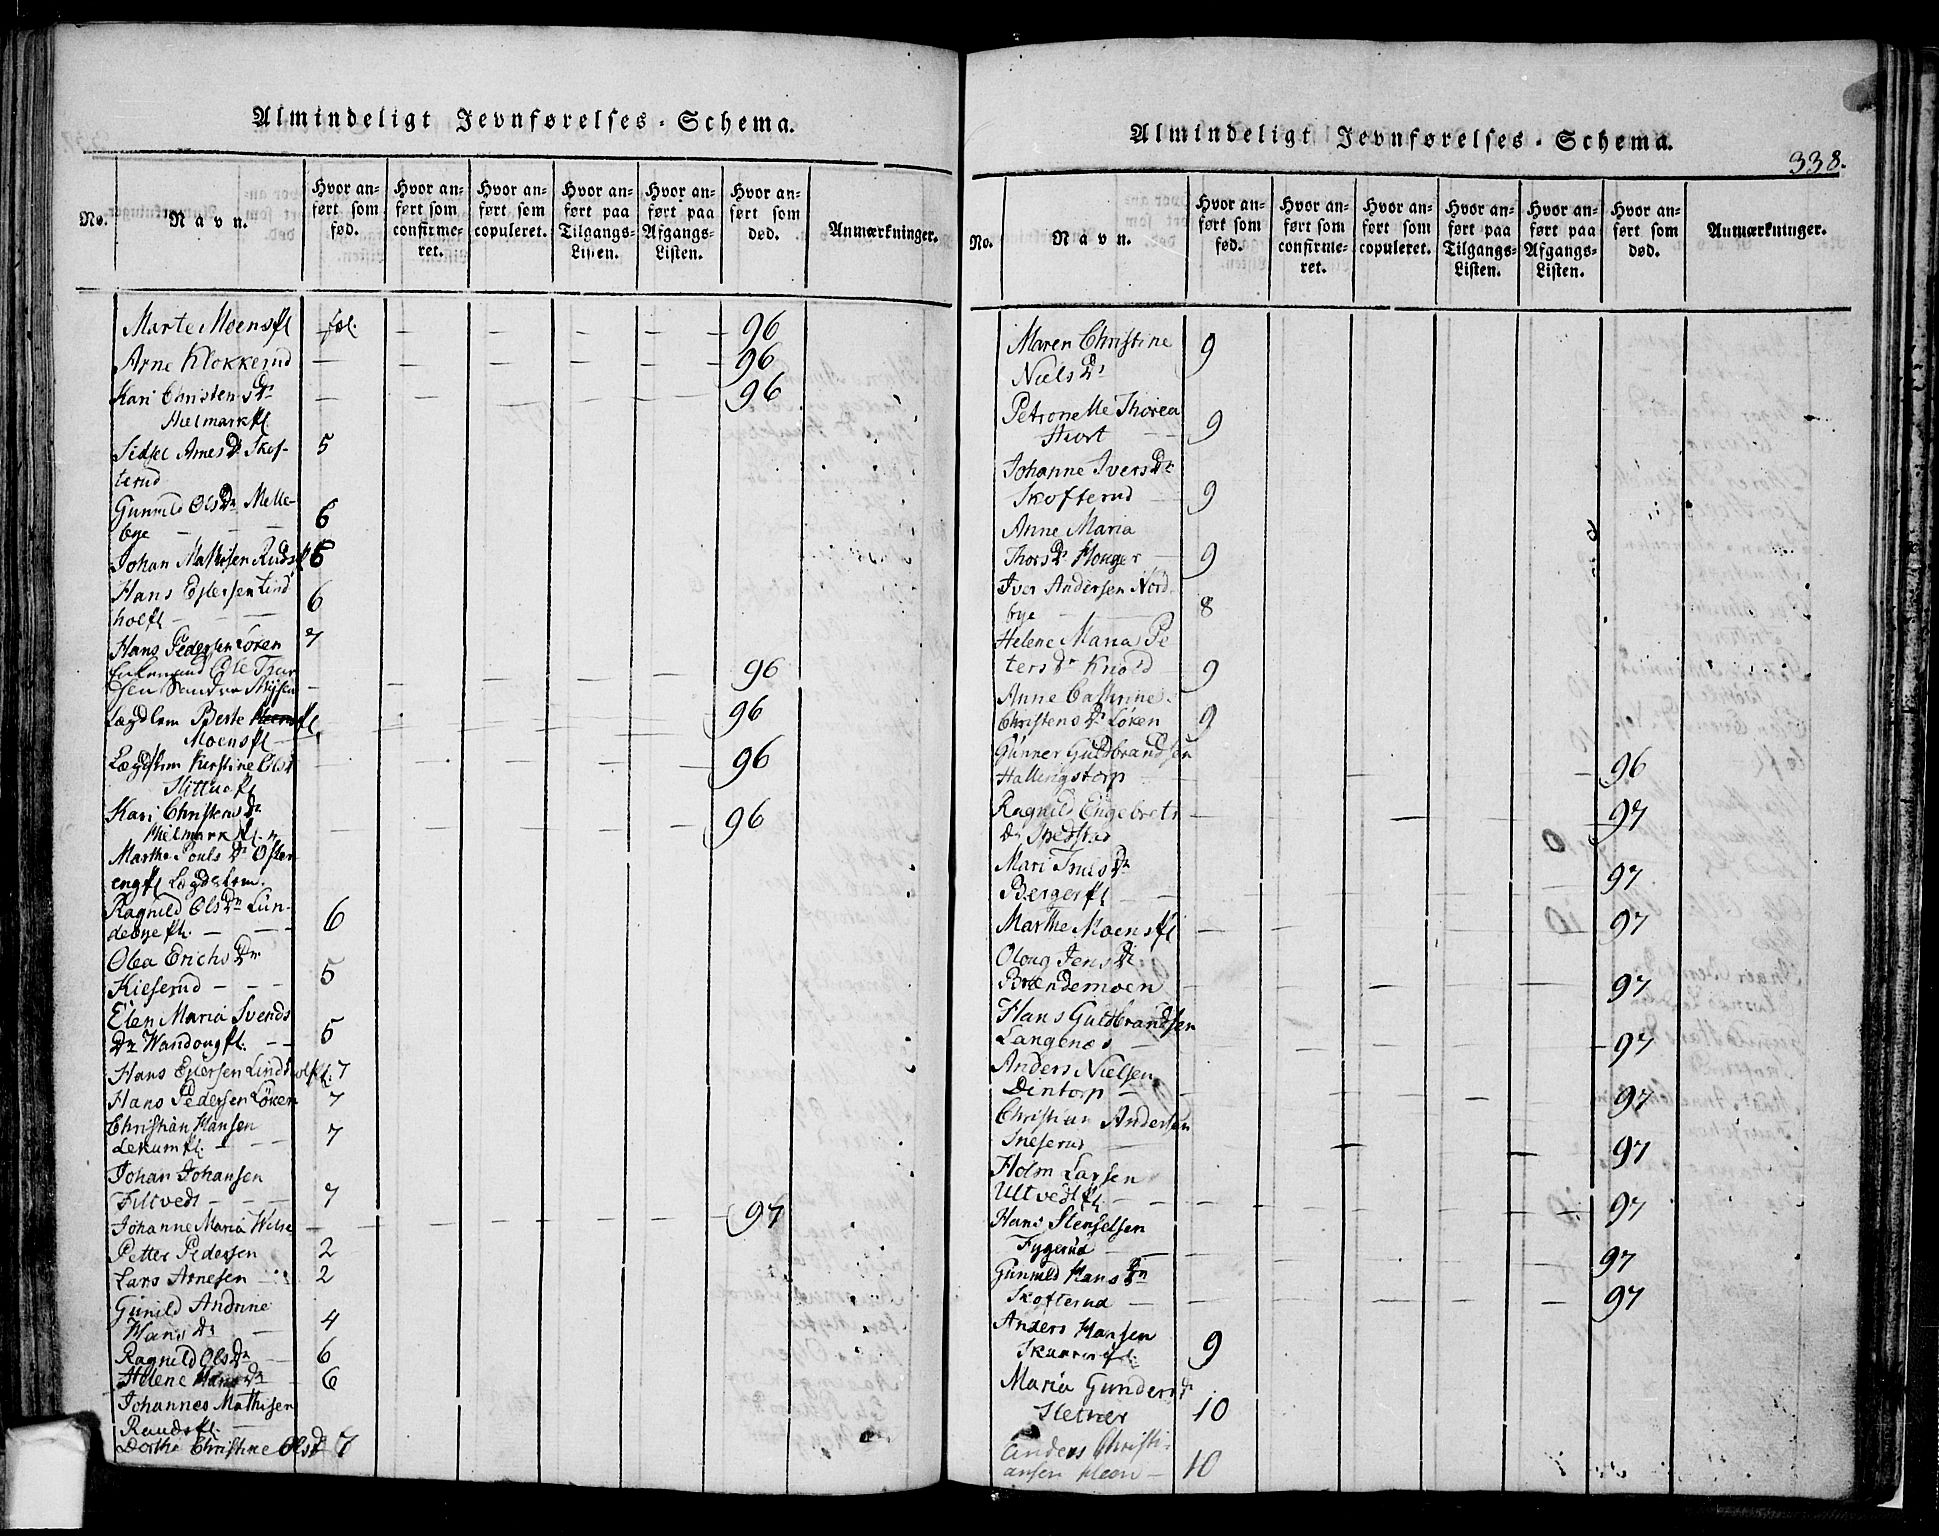 Almindeligt Jevnførelses-Schema.
No.
Navn.
Hvor anført som fød.
Hvor anført som confirmeret.
Hvor anført som copuleret.
Hvor anført paa Tilgangs-Listen.
Hvor anført paa Afgangs-Listen.
Hvor anført som død.
Anmærkninger.
Marte Moensfl — — — — — 96
Arne Klokkerud — — — — — 96
Kari Christens Dr — — — — — 96
Hielmarkfl.
Sidsel Arnes Dr Skof- 5
terud
Gunnild Ols Dr Melle- 6
bye — — —
Johan Mathisen Rudsfl 6
Hans Ejlersen Lind 6
holfl — — —
Hans Pedersen Løken 7
Enkemand Ole Thor
sen Søndre Mysen — — — — — — 96
Lægdlem Berte
Moensfl — — — — — 96
Lægdslem Kerstine Olsd — — — — — 96
Hittuefl
Kari Christens Dr
Hielmarkfl. — — — — — 96
Marthe Pouls Dr Østen
engfl Lægdslem.
Ragnild Ols Dr Lun- 6
debyefl. — — —
Olea Erichs Dr 5
Kieserud — — —
Elen Maria Svends
Dr Wandougfl. — — 5
Hans Ejlersen Lindholfl. 7
Hans Pedersen Løken 7
Christian Hansen
Lekumfl. — — — 7
Johan Johansen
Filtvedt — — — 7
Johanne Maria Wilse — — — — — — 97
Petter Pedersen 2
Lars Arnesen — 2
Gunild Andrine
Hans Dr — 4
Ragnild Ols Dr — 6
Helene Hans Dr — 6
Johannes Mathisen
Raudsfl. —
Dorthe Christine Olsd 7
Almindeligt Jevnførelses-Schema.
338.
No.
Navn.
Hvor anført som fød.
Hvor anført som confirmeret.
Hvor anført som copuleret.
Hvor anført paa Tilgangs-Listen.
Hvor anført paa Afgangs-Listen.
Hvor anført som død.
Anmærkninger.
Maren Christine 9
Niels Dr
Petronelle Thorea
Hiort — — 9
Johanne Ivers Dr
Skofterud — 9
Anne Maria
Thors Dr Houger — 9
Iver Andersen Nord
bye — — 8
Helene Maria Pe
ters Dr Knold — 9
Anne Cathrine
Christens Dr Løken 9
Gunner Guldbrandsen
Hallingstorp — 96
Ragnild Engebrets
Dr — — — — — — 97
Mari Truls Dr
Bergerfl — — — — — — — 97
Marthe Moensfl — — — — — 97
Oloug Jens Dr
Brændemoen — — — — — 97
Hans Guldbrandsen
Langenæs — — — — — — 97
Anders Nielsen
Dintorp — — — — — — 97
Christian Andersen
Sneserud — — — — 97
Holm Larsen
Ultvedtfl. — — — — — — 97
Hans Stenselsen
Fygerud — — — — 97
Gunnild Hans Dr
Skofterud — — — — — — 97
Anders Hansen
9
Maria Gunders Dr
Sletner 10
Anders Christi-
ansen Moen — 10